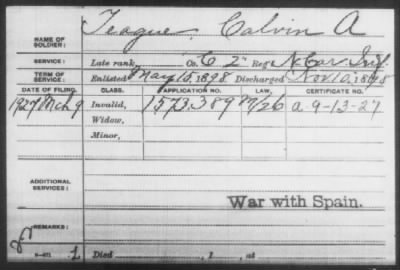 Teague, Calvin A
NAME OF SOLDIER:
SERVICE: Late rank, Co. C 2" Reg't N. Car. Inf.
TERM OF SERVICE: Enlisted May 15, 1898 Discharged Nov 10, 1898
DATE OF FILING. CLASS. APPLICATION NO. LAW. CERTIFICATE NO.
1927 Mch 9 Invalid, 1573.389 a 9-13-27
Widow,
Minor,
ADDITIONAL SERVICES:
War with Spain.
REMARKS:
Died , 1 , at